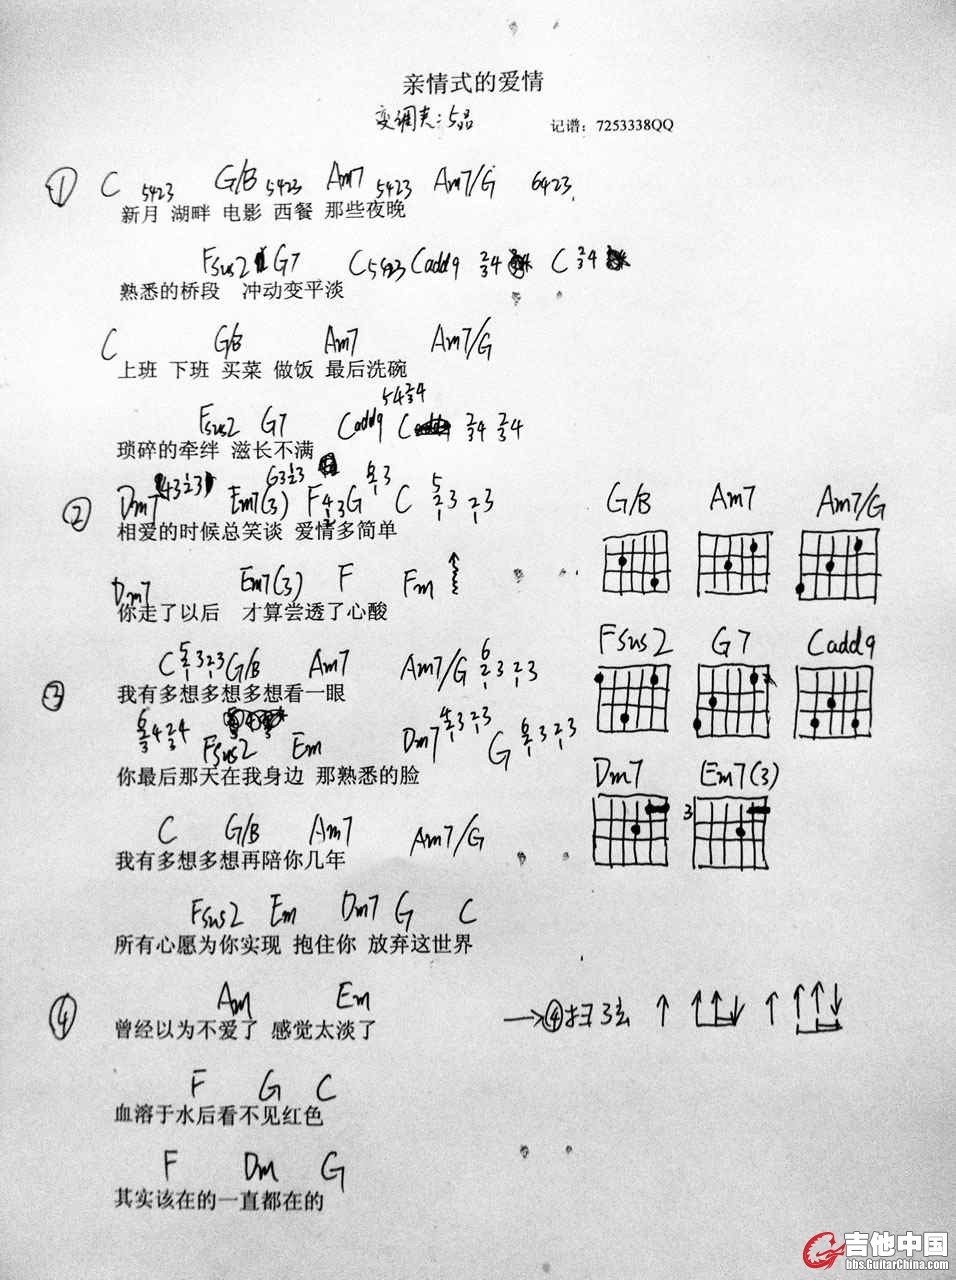 亲情式的爱情
变调夹:5品 记谱：7253338QQ
① C 5423 G/B 5423 Am7 5423 Am7/G 6423
新月 湖畔 电影 西餐 那些夜晚
Fsus2 G7 C 5423 Cadd9 2/3 4 C 2/3 4
熟悉的桥段 冲动变平淡
C G/B Am7 Am7/G
上班 下班 买菜 做饭 最后洗碗
54 2/3 4
Fsus2 G7 Cadd9 C 2/3 4 2/3 4
琐碎的牵绊 滋长不满
② Dm7 Em7(3) F G C
相爱的时候总笑谈 爱情多简单
Dm7 Em7(3) F Fm
你走了以后 才算尝透了心酸
C G/B Am7 Am7/G
③ 我有多想多想多想看一眼
Fsus2 Em Dm7 G
你最后那天在我身边 那熟悉的脸
C G/B Am7 Am7/G
我有多想多想再陪你几年
Fsus2 Em Dm7 G C
所有心愿为你实现 抱住你 放弃这世界
G/B Am7 Am7/G
Fsus2 G7 Cadd9
Dm7 Em7(3)
3
④ Am Em
曾经以为不爱了 感觉太淡了
→④扫弦 ↑ ↑↑↓ ↑ ↑↑↓
F G C
血溶于水后看不见红色
F Dm G
其实该在的一直都在的
吉他中国
bbs.GuitarChina.com